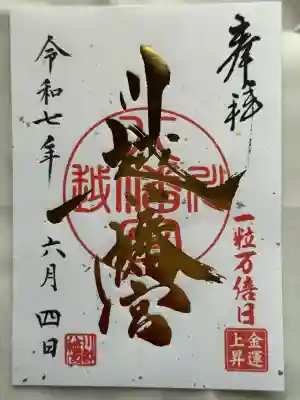 奉拝
一粒万倍日
金運
上昇
川越八幡宮
令和七年 六月 四日